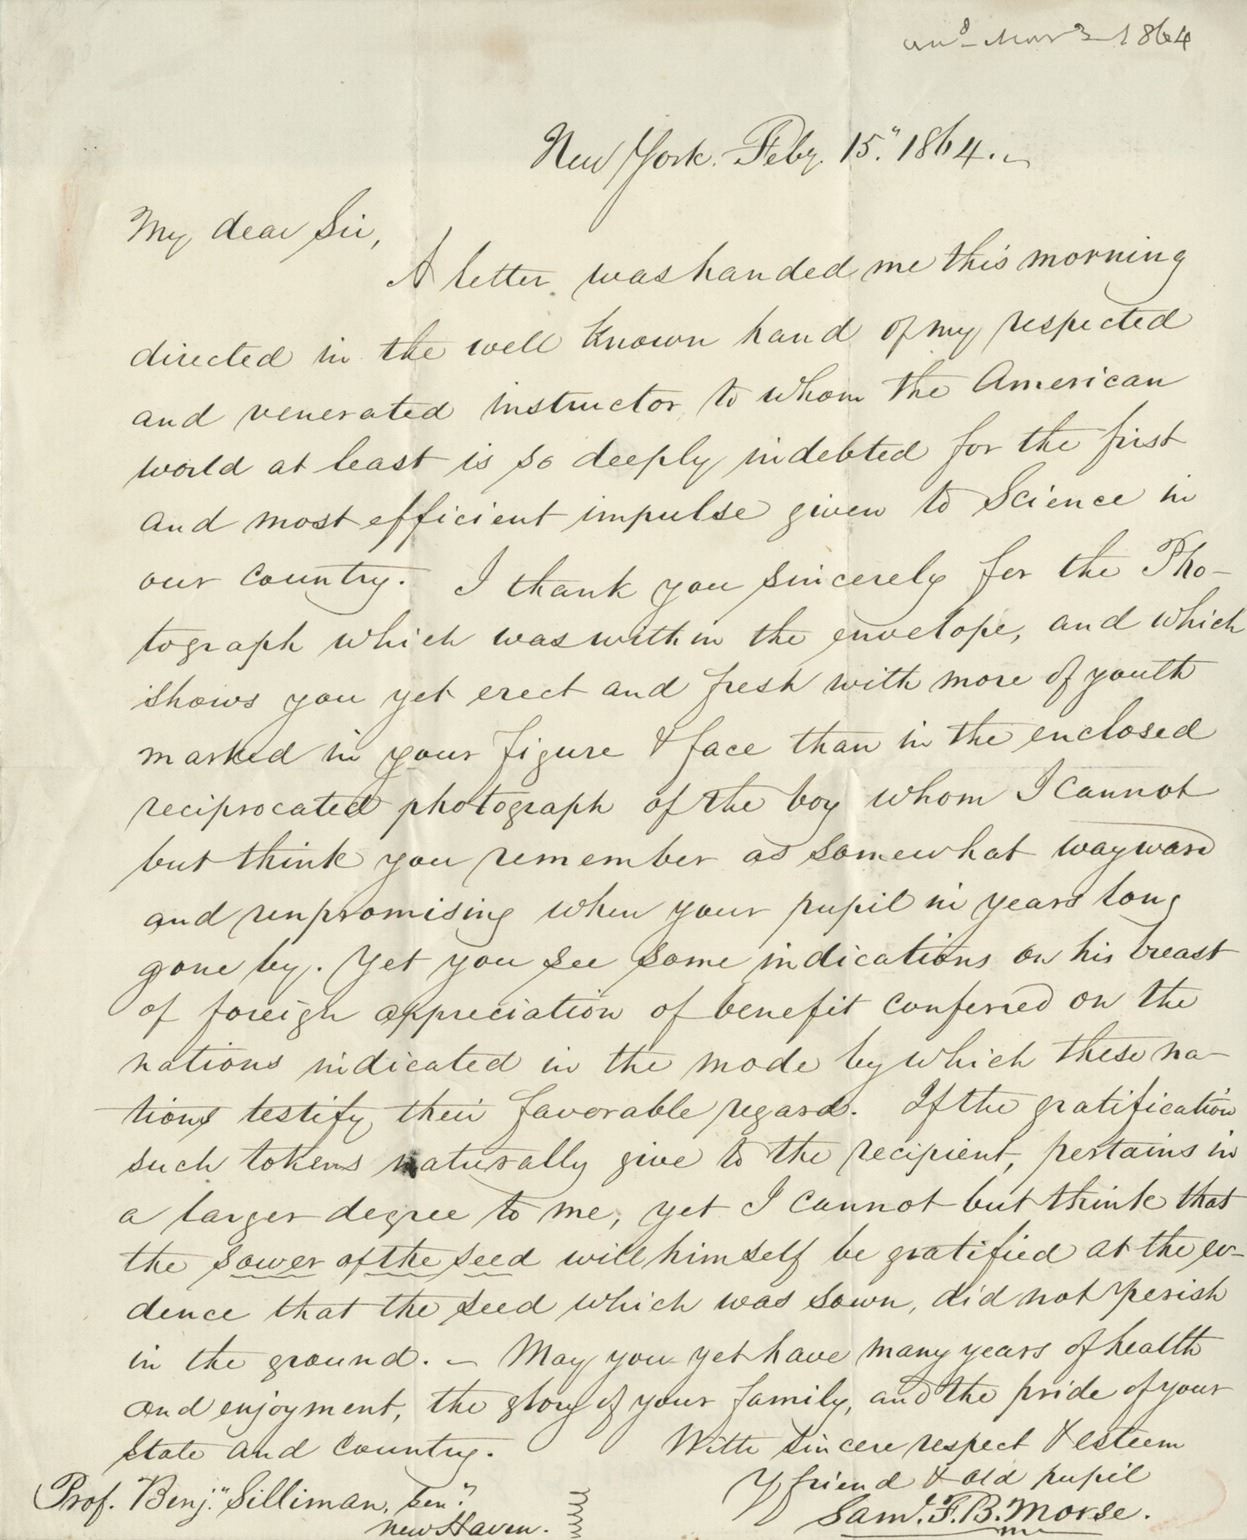 ansd Mar 3 1864
New York. Feby. 15." 1864.
My dear Sir,
A letter was handed me this morning
directed in the well known hand of my respected
and venerated instructor, to whom the American
world at least is so deeply indebted for the first
and most efficient impulse given to Science in
our country. I thank you sincerely for the Pho-
tograph which was within the envelope, and which
shows you yet erect and fresh with more of youth
marked in your figure & face than in the enclosed
reciprocated photograph of the boy whom I cannot
but think you remember as somewhat wayward
and unpromising when your pupil in years long
gone by. Yet you see some indications on his breast
of foreign appreciation of benefit conferred on the
nations indicated in the mode by which these na-
tions testify their favorable regard. If the gratification
such tokens naturally give to the recipient, pertains in
a larger degree to me, yet I cannot but think that
the sower of the seed will himself be gratified at the ev-
dence that the seed which was sown, did not perish
in the ground. – May you yet have many years of health
and enjoyment, the glory of your family, and the pride of your
State and Country.
With sincere respect & esteem
Yr friend & old pupil
Saml. F. B. Morse.
Prof. Benj." Silliman, Sen."
New Haven.